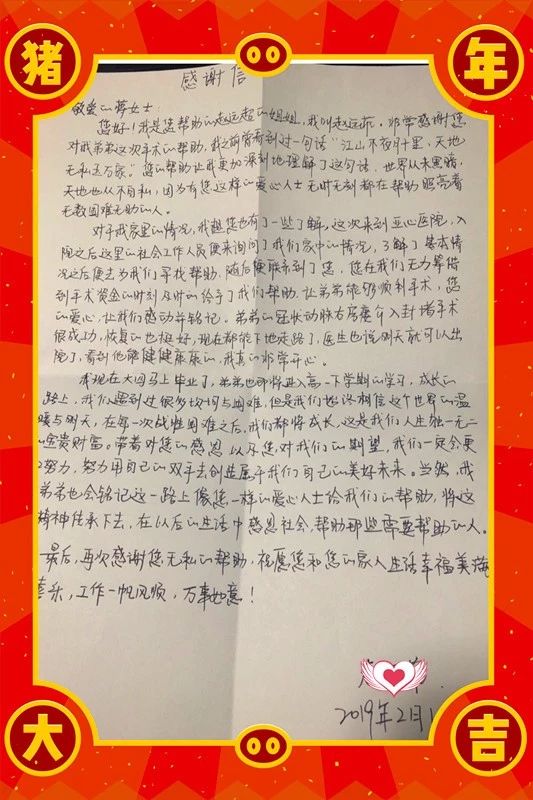 猪 年
感谢信
敬爱的 女士:
您好!我是您帮助的赵远超的姐姐,我叫赵远 ,非常感谢您
对我弟弟这次手术的帮助,我之前曾看到过一句话“江山不夜 千里,天地
无私玉万家。”您的帮助让我更加深刻地理解了这句话,世界从未寒 ,
天地也从不自私,因为有您这样的爱心人士无时无刻都在帮助照亮着
无数困难无助的人。
对于我家里的情况,我想您也有了一些了解,这次来到亚心医院,入
院之后这里的社会工作人员便来询问了我们家中的情况,了解了基本情
况之后便去为我们寻找帮助,随后便联系到了您,您在我们无力筹借
到手术资金的时刻及时的给予了我们帮助,让弟弟能够顺利手术,您
的爱心,让我们感动并铭记。弟弟的冠状动脉右房瘘介入封堵手术
很成功,恢复的也挺好,现在都能下地走路了,医生也说明天就可以出
院了,看到他能健健康康的,我真的非常开心。
我现在大四马上毕业了,弟弟也即将进入高一下学期的学习,成长的
路上,我们遇到过很多坎坷与困难,但是我们始终相信这个世界的温
暖与明天,在每一次战胜困难之后,我们都将成长,这是我们人生独一无二
的宝贵财富。带着对您的感恩以及您对我们的期望,我们一定会更
努力,努力用自己的双手去创造属于我们自己的美好未来。当然,我
弟弟也会铭记这一路上像您一样的爱心人士给我们的帮助,将这
精神传承下去,在以后的生活中感恩社会,帮助那些需要帮助的人。
最后,再次感谢您无私的帮助,祝愿您和您的家人生活幸福美满
喜乐,工作一帆风顺,万事如意!
2019年2月1
大 吉